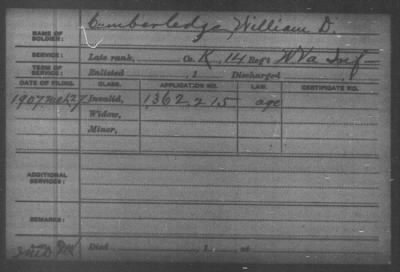 NAME OF SOLDIER: Cumberledge, William D.
SERVICE: Late rank, Co. K, 14 Reg't W Va Inf
TERM OF SERVICE: Enlisted , 1 Discharged , 1
DATE OF FILING. CLASS. APPLICATION NO. LAW. CERTIFICATE NO.
1907 Mch 27 Invalid, 1,362,215 age
Widow,
Minor,
ADDITIONAL SERVICES:
REMARKS:
Died , 1 , at